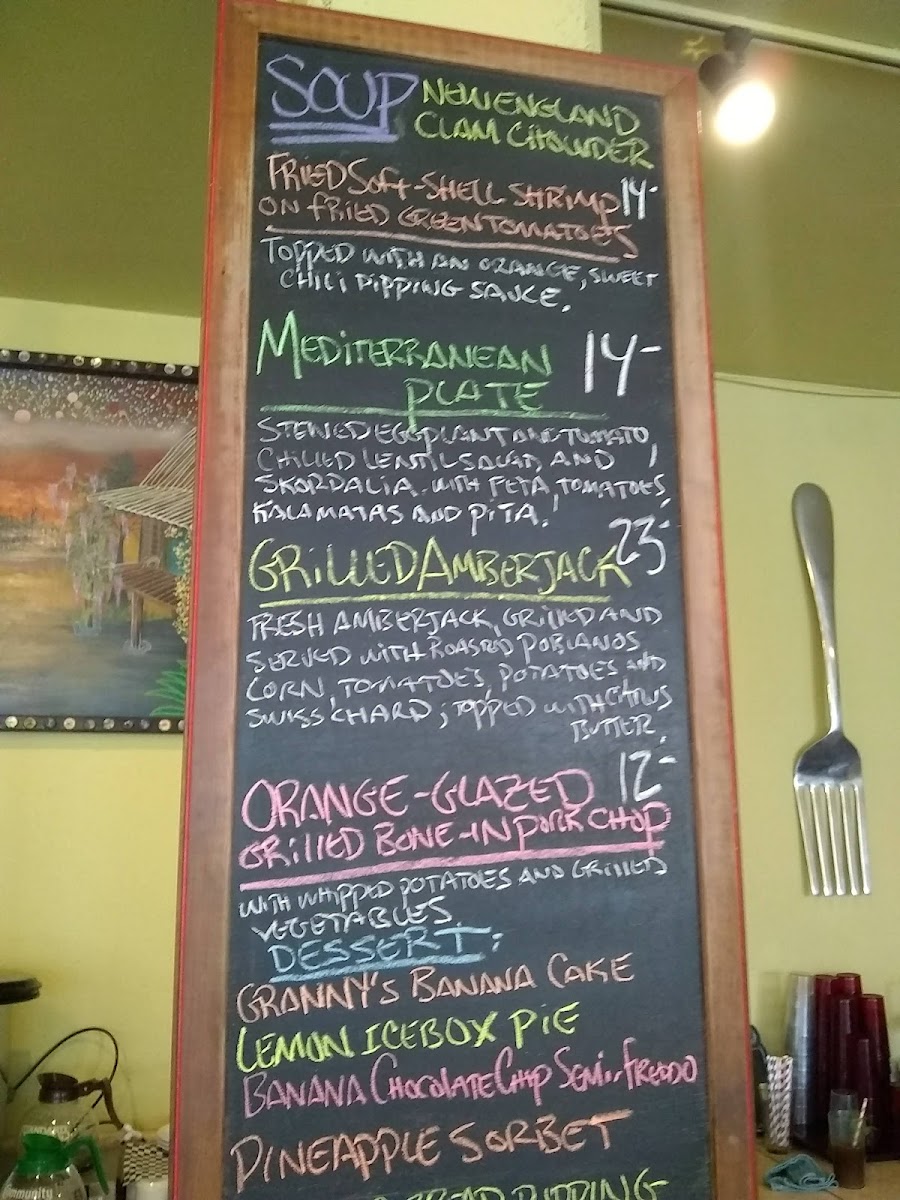 SOUP NEW ENGLAND
CLAM CHOWDER
FRIED SOFT-SHELL SHRIMP 14-
ON FRIED GREEN TOMATOES
TOPPED WITH AN ORANGE, SWEET
CHILI DIPPING SAUCE.
MEDITERRANEAN 14-
PLATE
STEWED EGGPLANT AND TOMATO,
CHILLED LENTIL SALAD, AND
SKORDALIA WITH FETA, TOMATOES,
KALAMATAS AND PITA.
GRILLED AMBERJACK 23-
FRESH AMBERJACK, GRILLED AND
SERVED WITH ROASTED POBLANOS
CORN, TOMATOES, POTATOES AND
SWISS CHARD; TOPPED WITH CITRUS
BUTTER.
ORANGE-GLAZED 12-
GRILLED BONE-IN PORK CHOP
WITH WHIPPED POTATOES AND GRILLED
VEGETABLES.
DESSERT:
GRANNY'S BANANA CAKE
LEMON ICEBOX PIE
BANANA CHOCOLATE CHIP SEMI-FREDDO
PINEAPPLE SORBET
BREAD PUDDING
mmunity